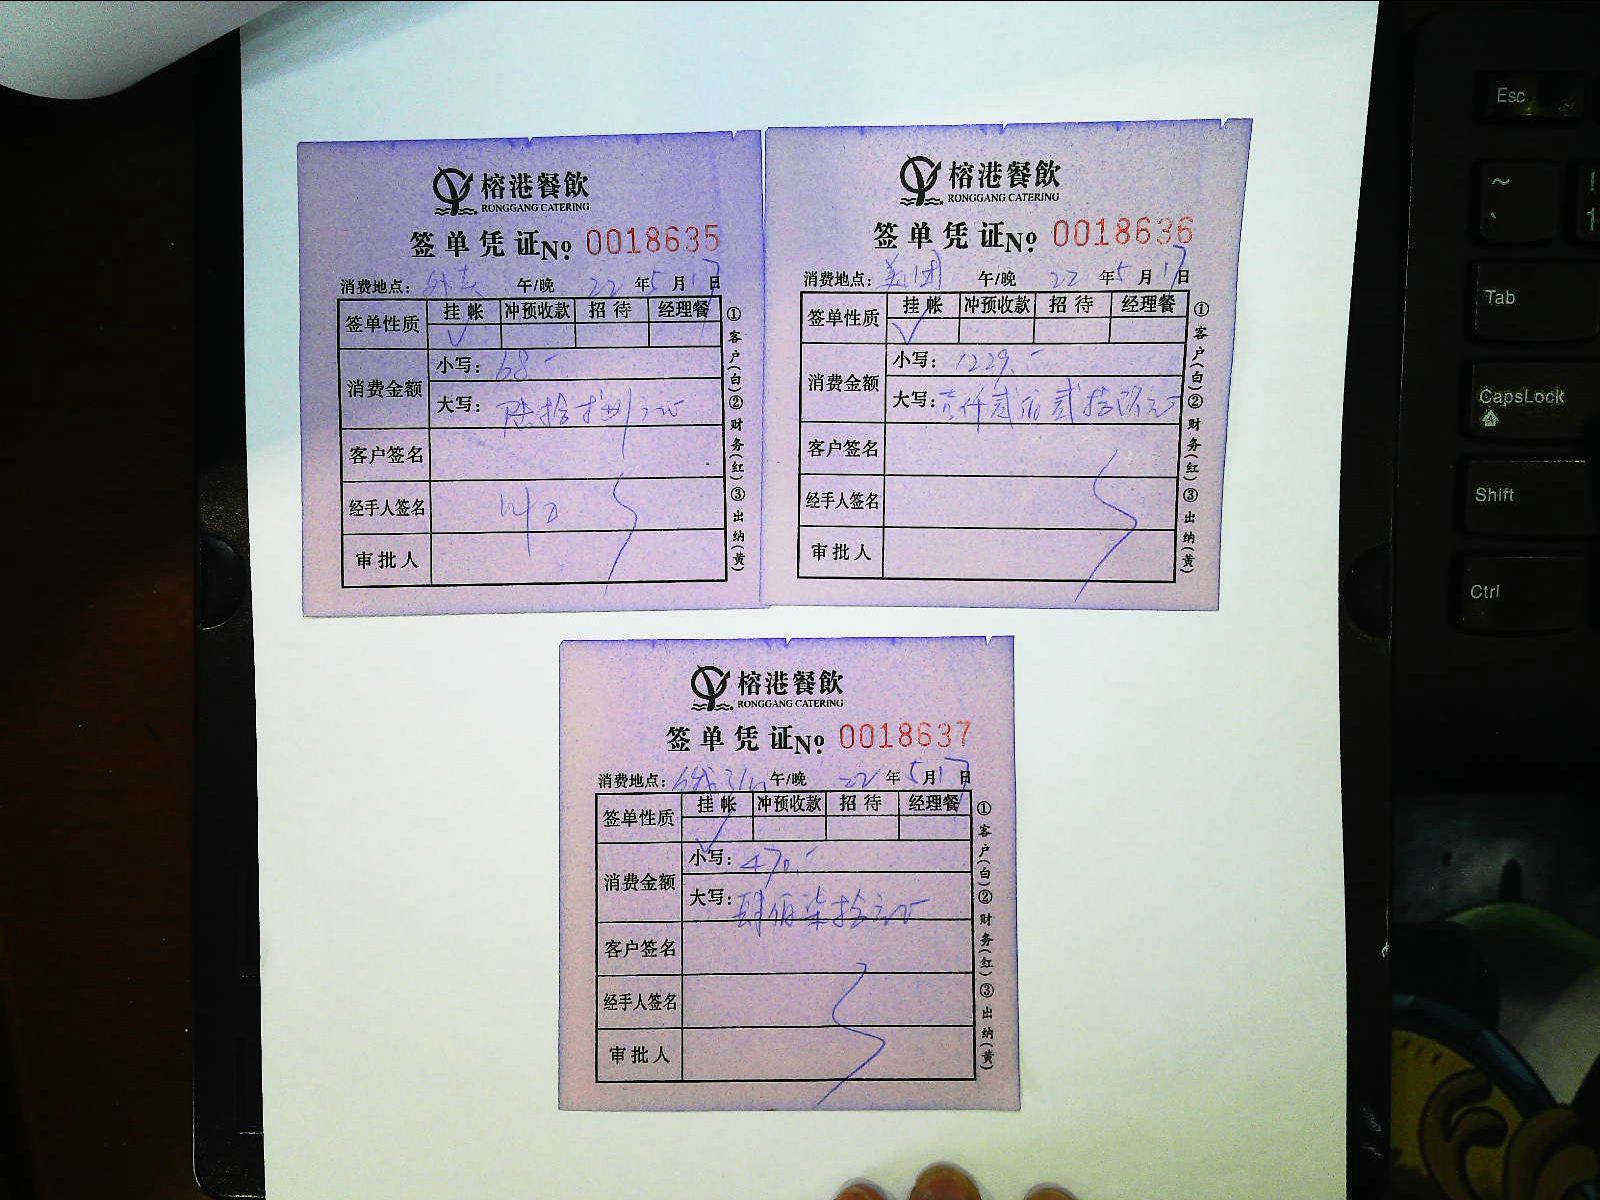 榕港餐飲
RONGGANG CATERING
签单凭证No 0018635
消费地点：外卖 午/晚 22年5月17日
签单性质 挂帐 冲预收款 招待 经理餐
✓
消费金额
小写：68.-
大写：陆拾捌元正
客户签名
经手人签名
审批人
①客户(白)②财务(红)③出纳(黄)
榕港餐飲
RONGGANG CATERING
签单凭证No 0018636
消费地点：美团 午/晚 22年5月17日
签单性质 挂帐 冲预收款 招待 经理餐
✓
消费金额
小写：1229.-
大写：壹仟贰佰贰拾玖元正
客户签名
经手人签名
审批人
①客户(白)②财务(红)③出纳(黄)
榕港餐飲
RONGGANG CATERING
签单凭证No 0018637
消费地点： 午/晚 22年5月17日
签单性质 挂帐 冲预收款 招待 经理餐
✓
消费金额
小写：470.-
大写：肆佰柒拾元正
客户签名
经手人签名
审批人
①客户(白)②财务(红)③出纳(黄)
Esc
~
Tab
CapsLock
Shift
Ctrl